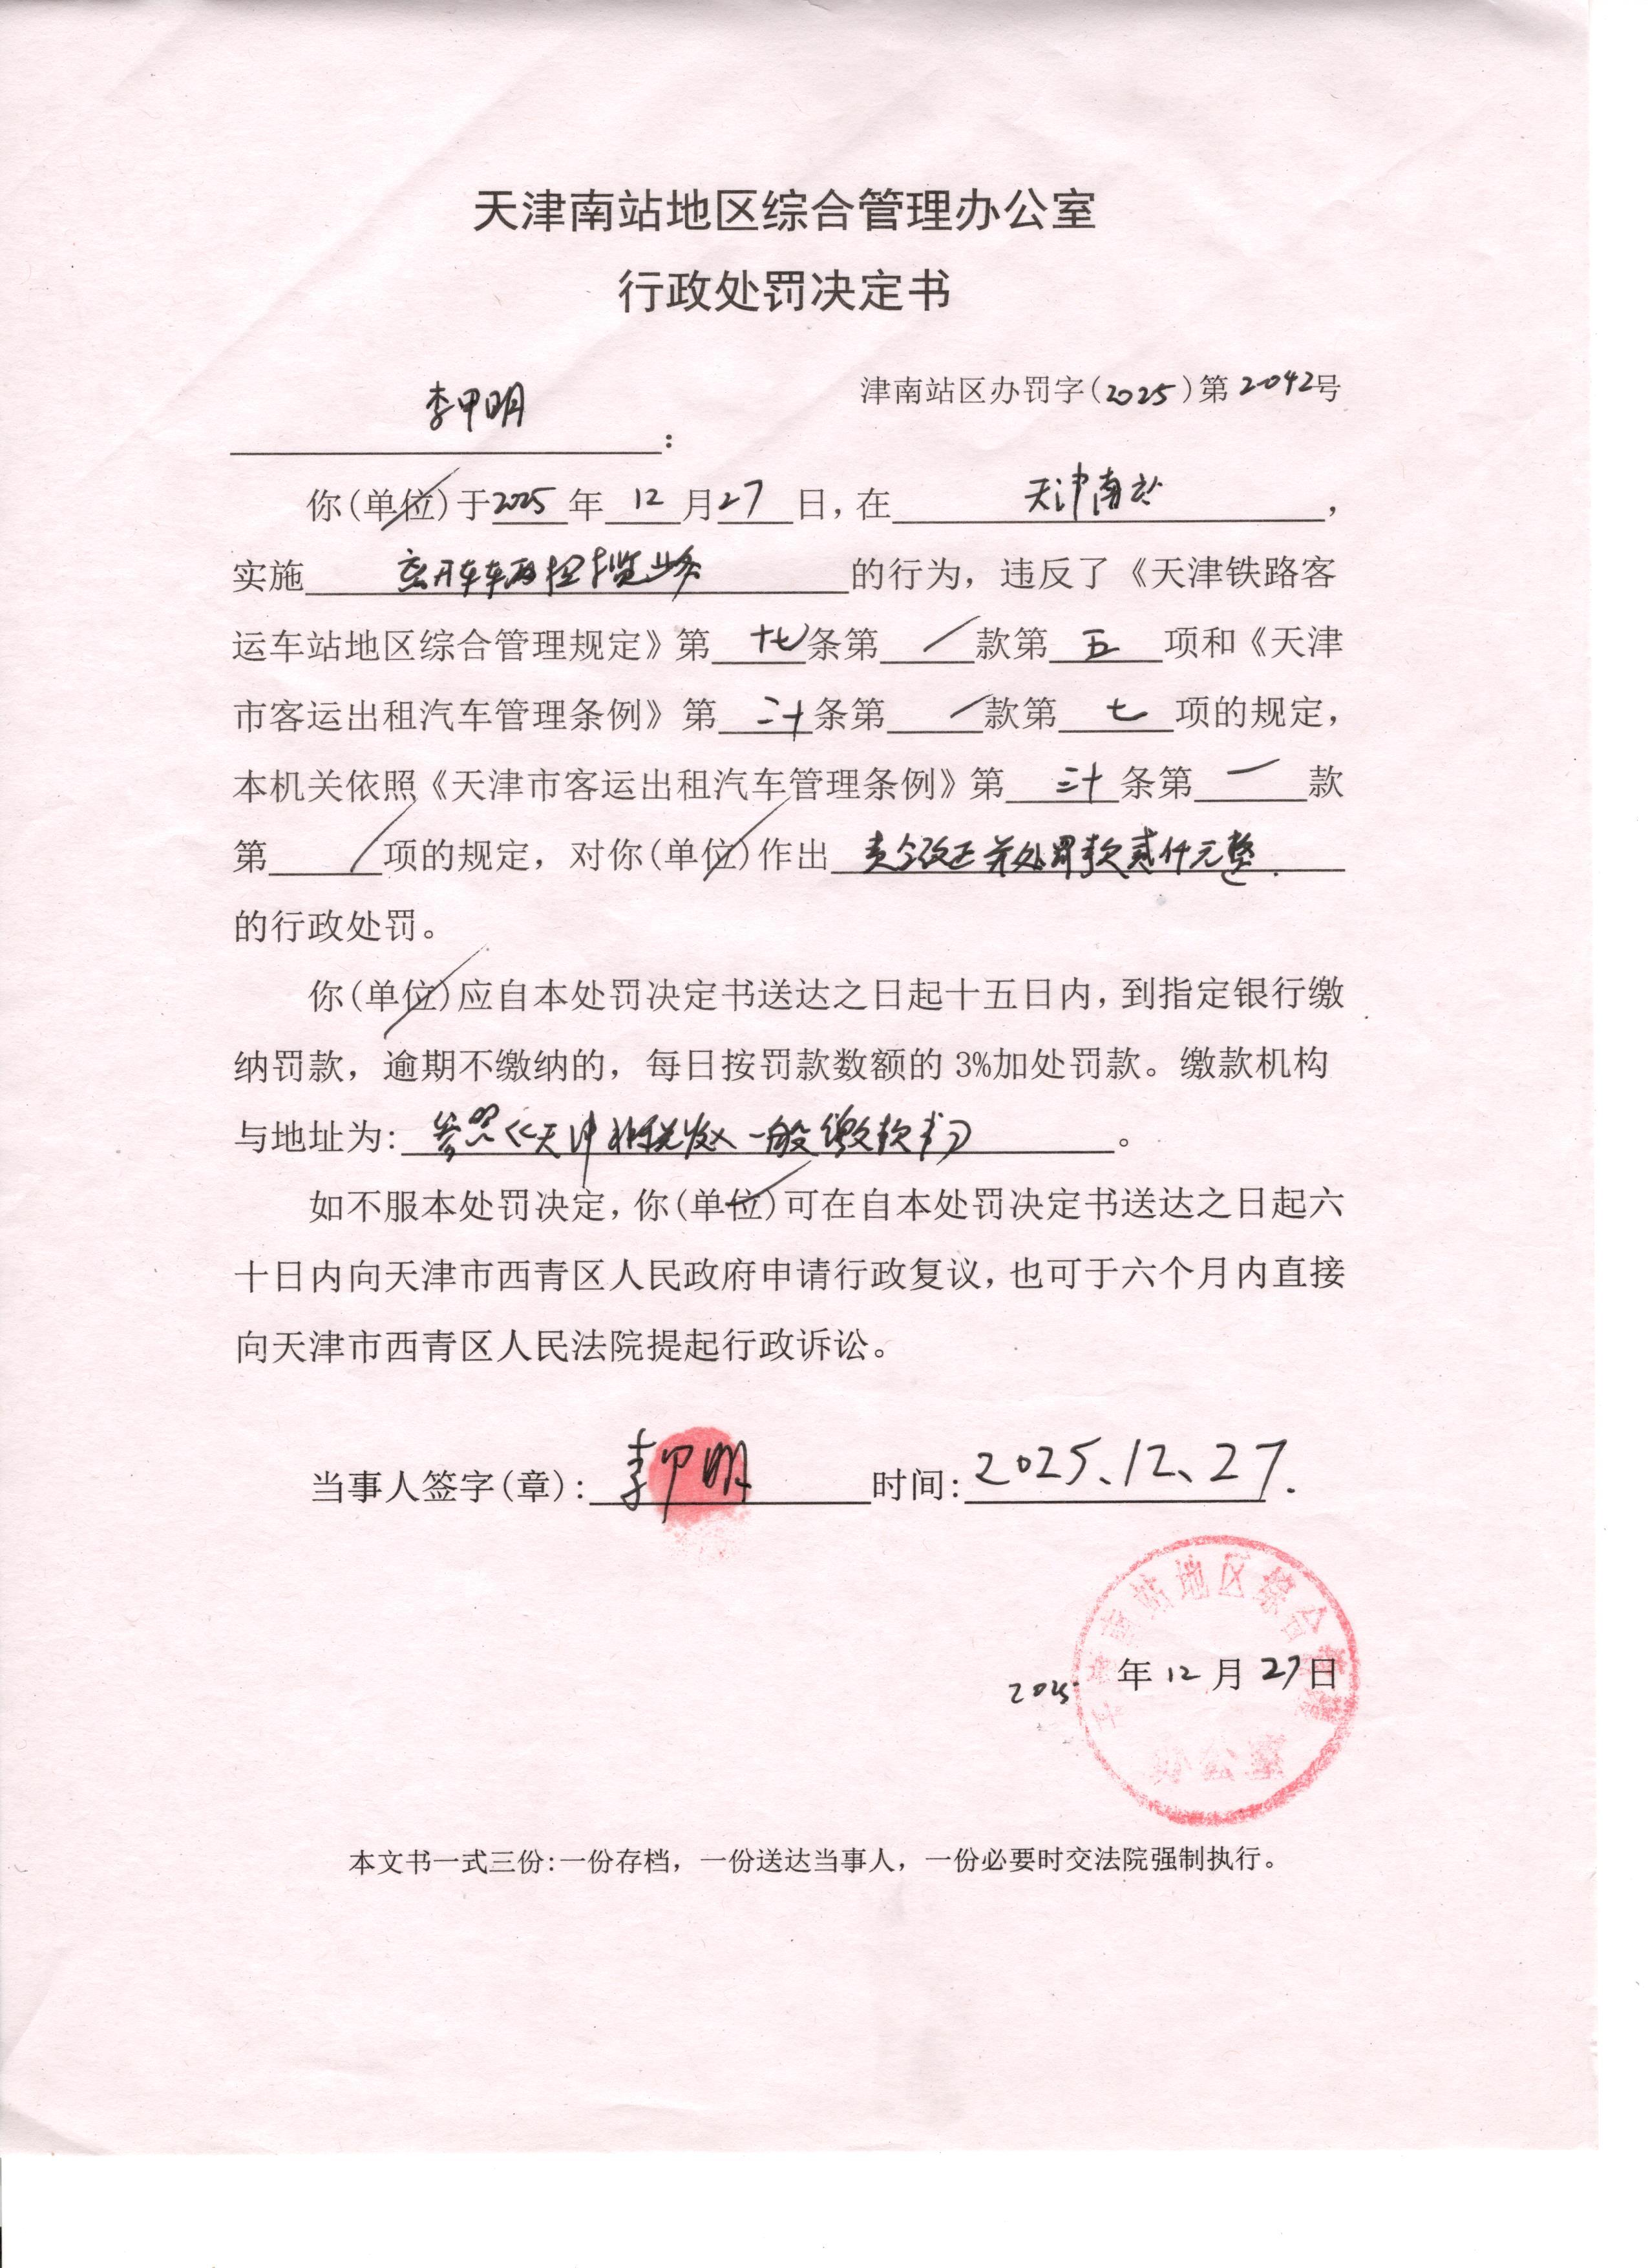 天津南站地区综合管理办公室
行政处罚决定书
津南站区办罚字(2025)第2042号
李甲明:
你(单位)于2025年12月27日,在天津南站,
实施离开车辆招揽业务的行为,违反了《天津铁路客
运车站地区综合管理规定》第十七条第/款第五项和《天津
市客运出租汽车管理条例》第二十条第/款第七项的规定,
本机关依照《天津市客运出租汽车管理条例》第三十条第一款
第/项的规定,对你(单位)作出责令改正并处罚款贰仟元整.
的行政处罚。
你(单位)应自本处罚决定书送达之日起十五日内,到指定银行缴
纳罚款,逾期不缴纳的,每日按罚款数额的3%加处罚款。缴款机构
与地址为:参照《天津非税收入一般缴款书》。
如不服本处罚决定,你(单位)可在自本处罚决定书送达之日起六
十日内向天津市西青区人民政府申请行政复议,也可于六个月内直接
向天津市西青区人民法院提起行政诉讼。
当事人签字(章):李甲明 时间:2025.12.27.
天津南站地区综合管理
2025年12月27日
办公室
本文书一式三份:一份存档,一份送达当事人,一份必要时交法院强制执行。